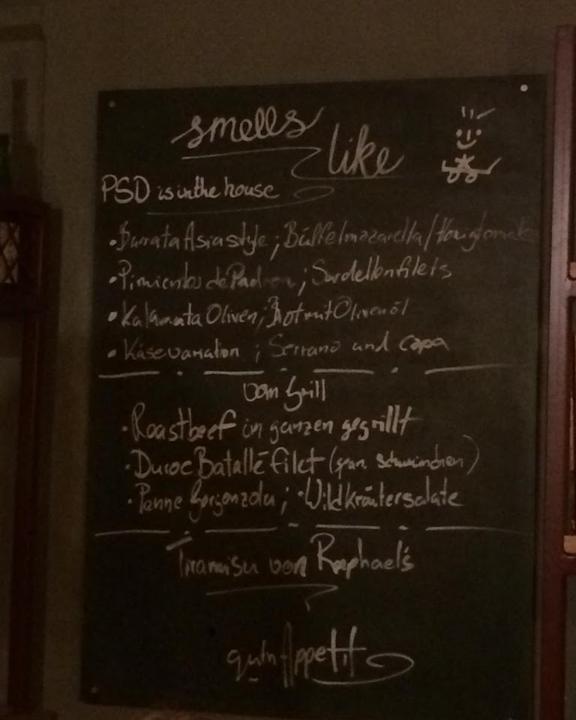 smells
like
PSD is in the house
• Burrata Asiastyle ; Büffelmozzarella /
• Pimientos de Padron ; Sardellenfilets
• Kalamata Oliven ; Brot mit Olivenöl
• Käsevariation ; Serrano and Copa
vom Grill
• Roastbeef im ganzen gegrillt
• Duroc Batallé filet (
• Penne Gorgonzola ; • Wildkräutersalate
Tiramisu von Raphael's
Appetit